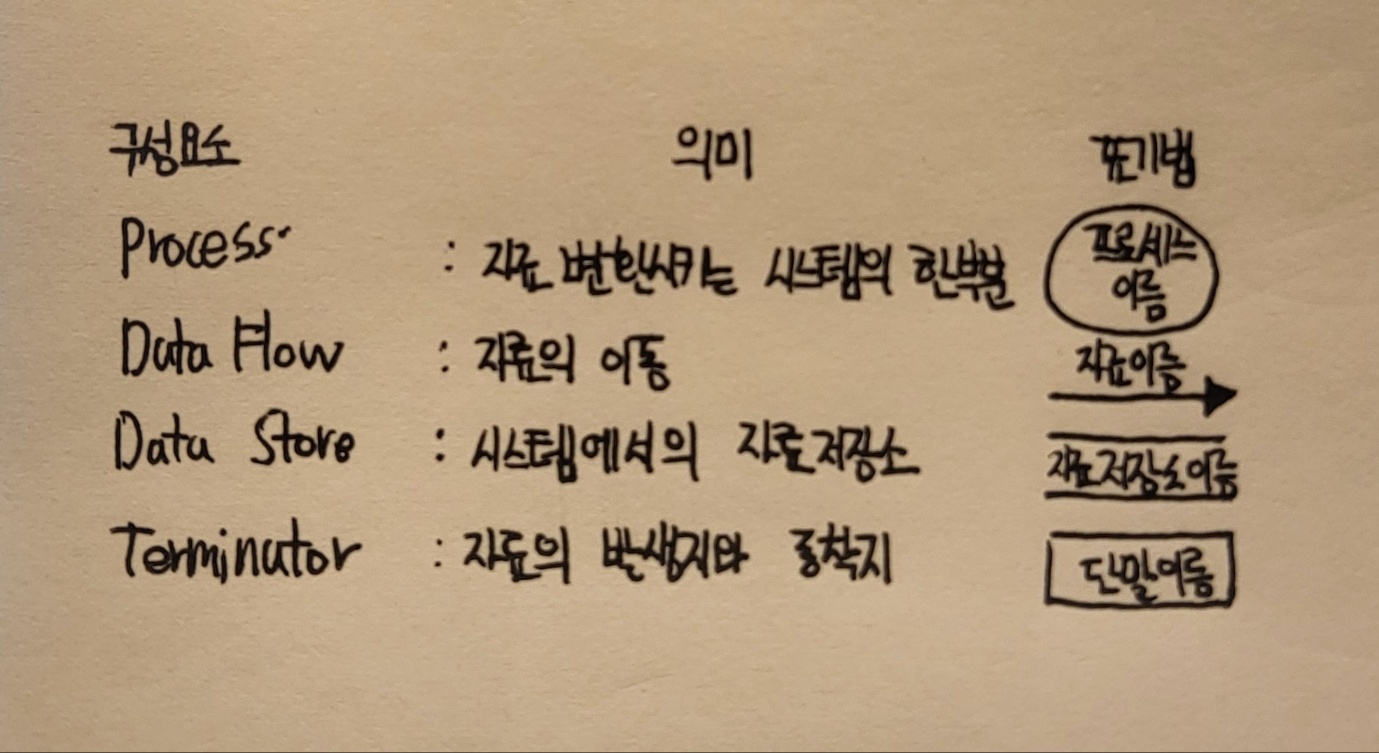 구성요소 의미 표기법
Process : 자료 변환시키는 시스템의 한부분 프로세스 이름
Data Flow : 자료의 이동 자료이름
Data Store : 시스템에서의 자료저장소 자료저장소이름
Terminator : 자료의 발생지와 종착지 단말이름